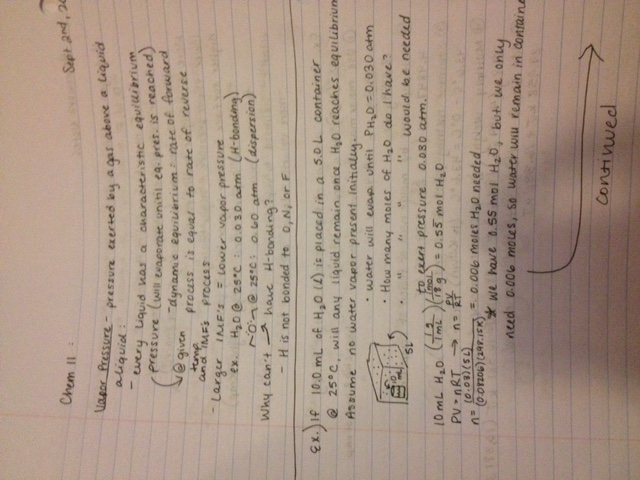 Chem 11: Sept 2nd, 20
Vapor Pressure - pressure exerted by a gas above a liquid
a liquid:
- every liquid has a characteristic equilibrium
pressure (will evaporate until eq. pres. is reached)
- dynamic equilibrium: rate of forward
process is equal to rate of reverse
process
@ given
temp
and IMF's
- Larger IMF's = Lower vapor pressure
ex. H2O @ 25°C : 0.030 atm (H-bonding)
@ 25°C: 0.60 atm (dispersion)
Why can't → have H-bonding?
- H is not bonded to O, N, or F
Ex.) If 10.0 mL of H2O (l) is placed in a 5.0 L container
@ 25°C, will any liquid remain once H2O reaches equilibrium
Assume no water vapor present initially.
• water will evap. until PH2O = 0.030 atm
• How many moles of H2O do I have?
• " " " " " would be needed
to exert pressure 0.030 atm.
5L
10 mL H2O (1g/1mL)(1mol/18g) = 0.55 mol H2O
PV = nRT → n = PV/RT
n = (0.03)(5L)/(0.08206)(298.15K) = 0.006 moles H2O needed
* we have 0.55 mol H2O, but we only
need 0.006 moles, so water will remain in container
continued